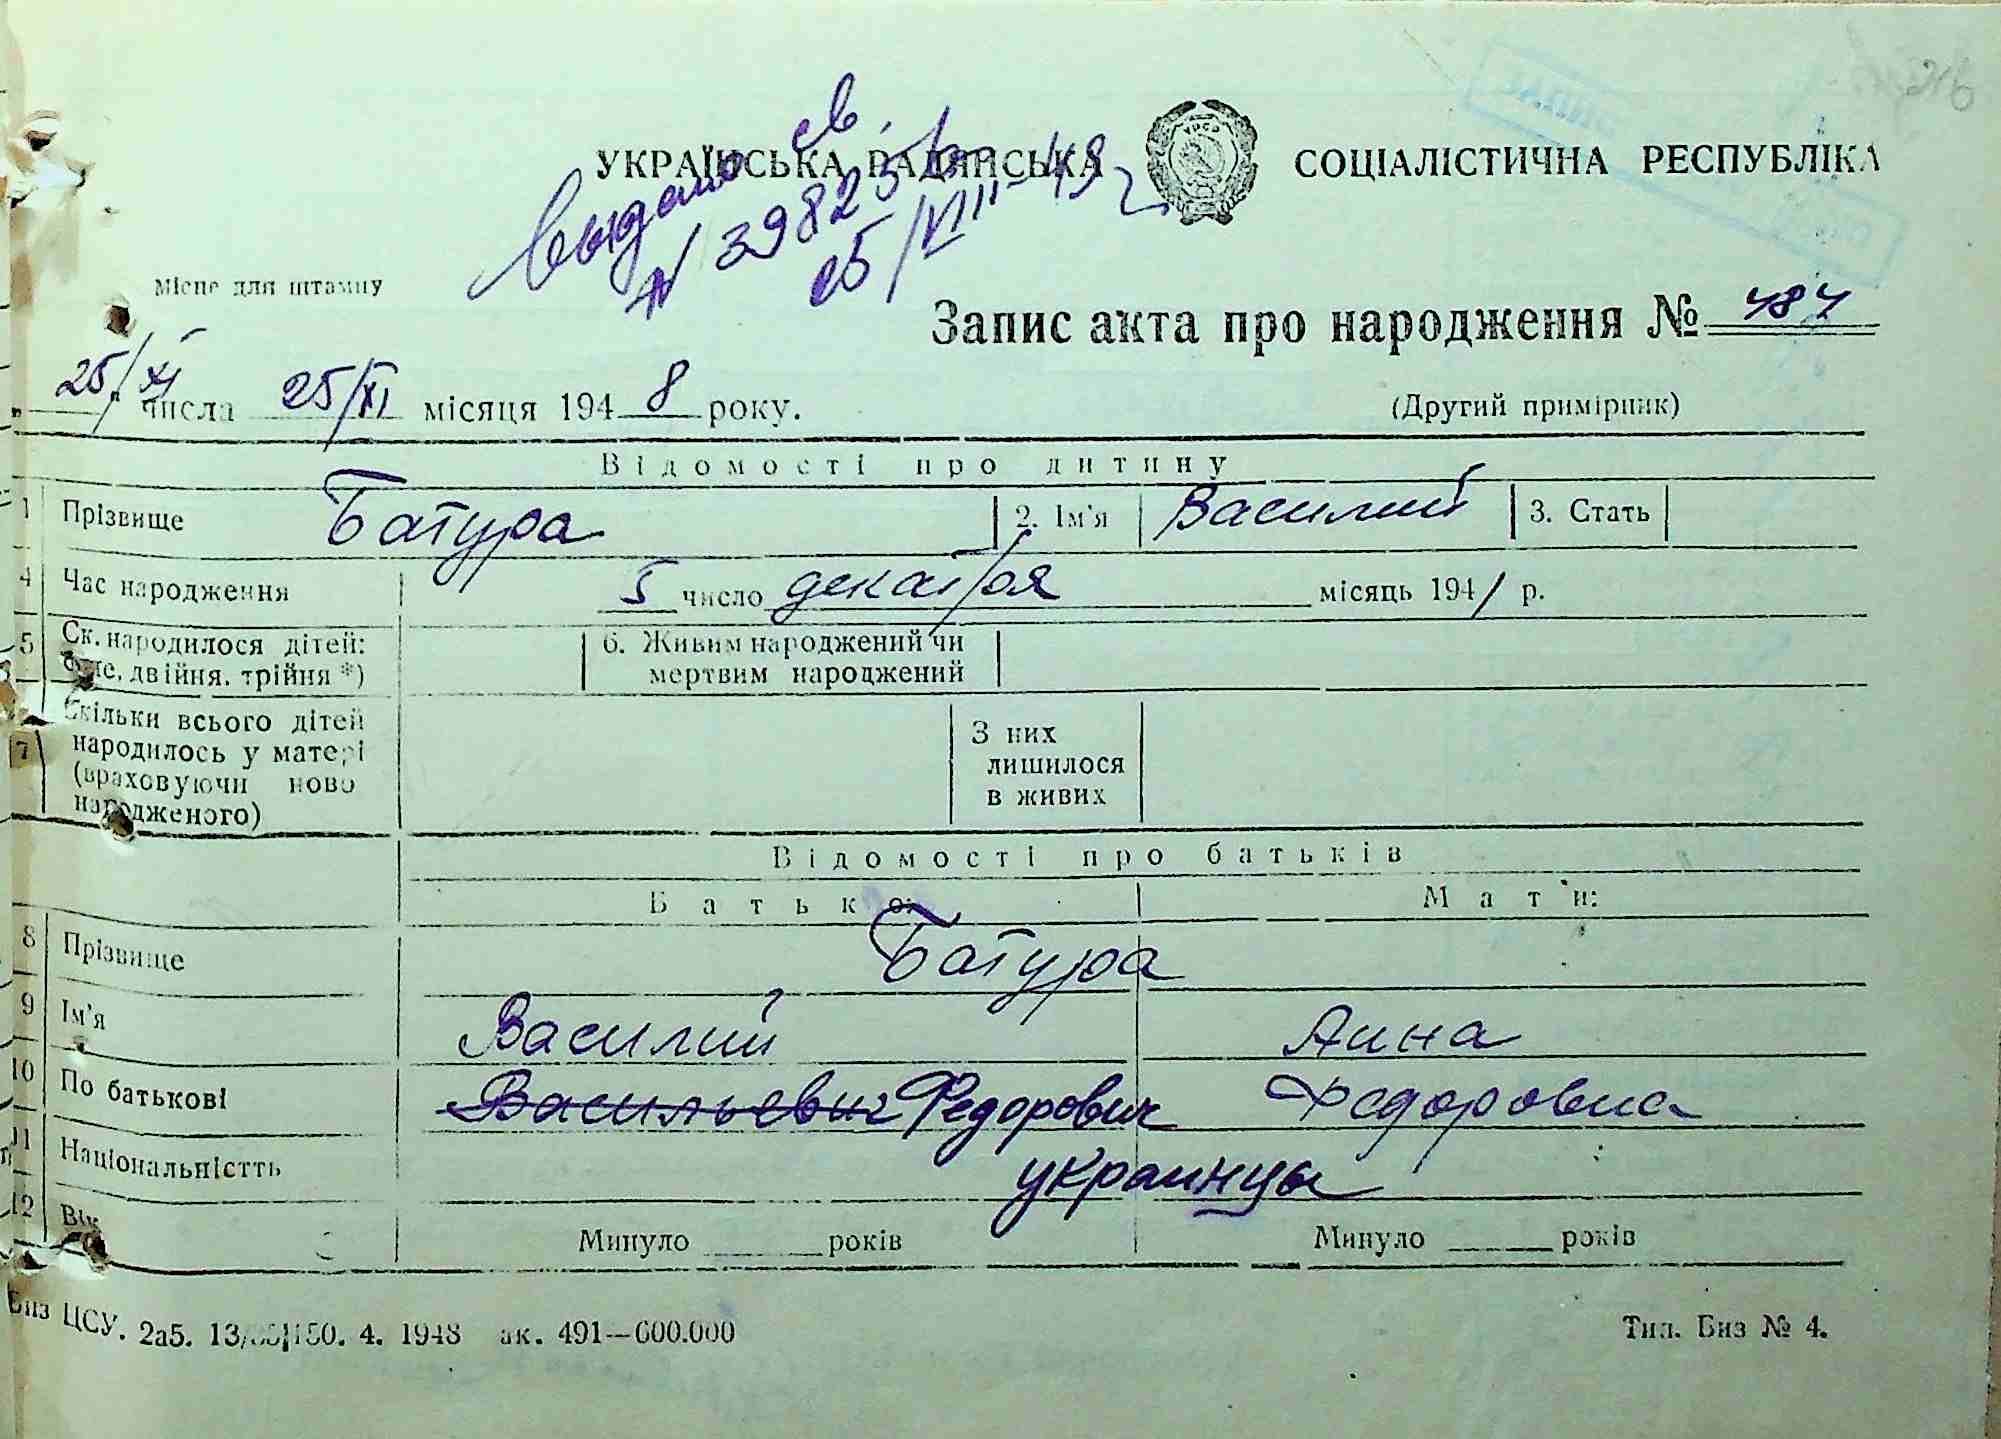 Выдано св.
УКРАЇНСЬКА РАДЯНСЬКА СОЦІАЛІСТИЧНА РЕСПУБЛІКА
УРСР
N 398255
25/VIII-49 г
Місце для штампу
Запис акта про народження № 484
25/XI числа 25/XI місяця 1948 року.
(Другий примірник)
Відомості про дитину
1 Прізвище Батура 2. Ім'я Василий 3. Стать
4 Час народження 5 число декабря місяць 1941 р.
5 Ск. народилося дітей: 6. Живим народжений чи
двійня, трійня *) мертвим народжений
7 Скільки всього дітей народилось у матері (враховуючи ново народженого) З них лишилося в живих
Відомості про батьків
Батько: Мати:
8 Прізвище Батура
9 Ім'я Василий Анна
10 По батькові Васильевич Федорович Федоровна
11 Національністть украинцы
12 Вік Минуло ____ років Минуло ____ років
Биз ЦСУ. 2а5. 4. 1948 ак. 491—600.000 Тип. Биз № 4.